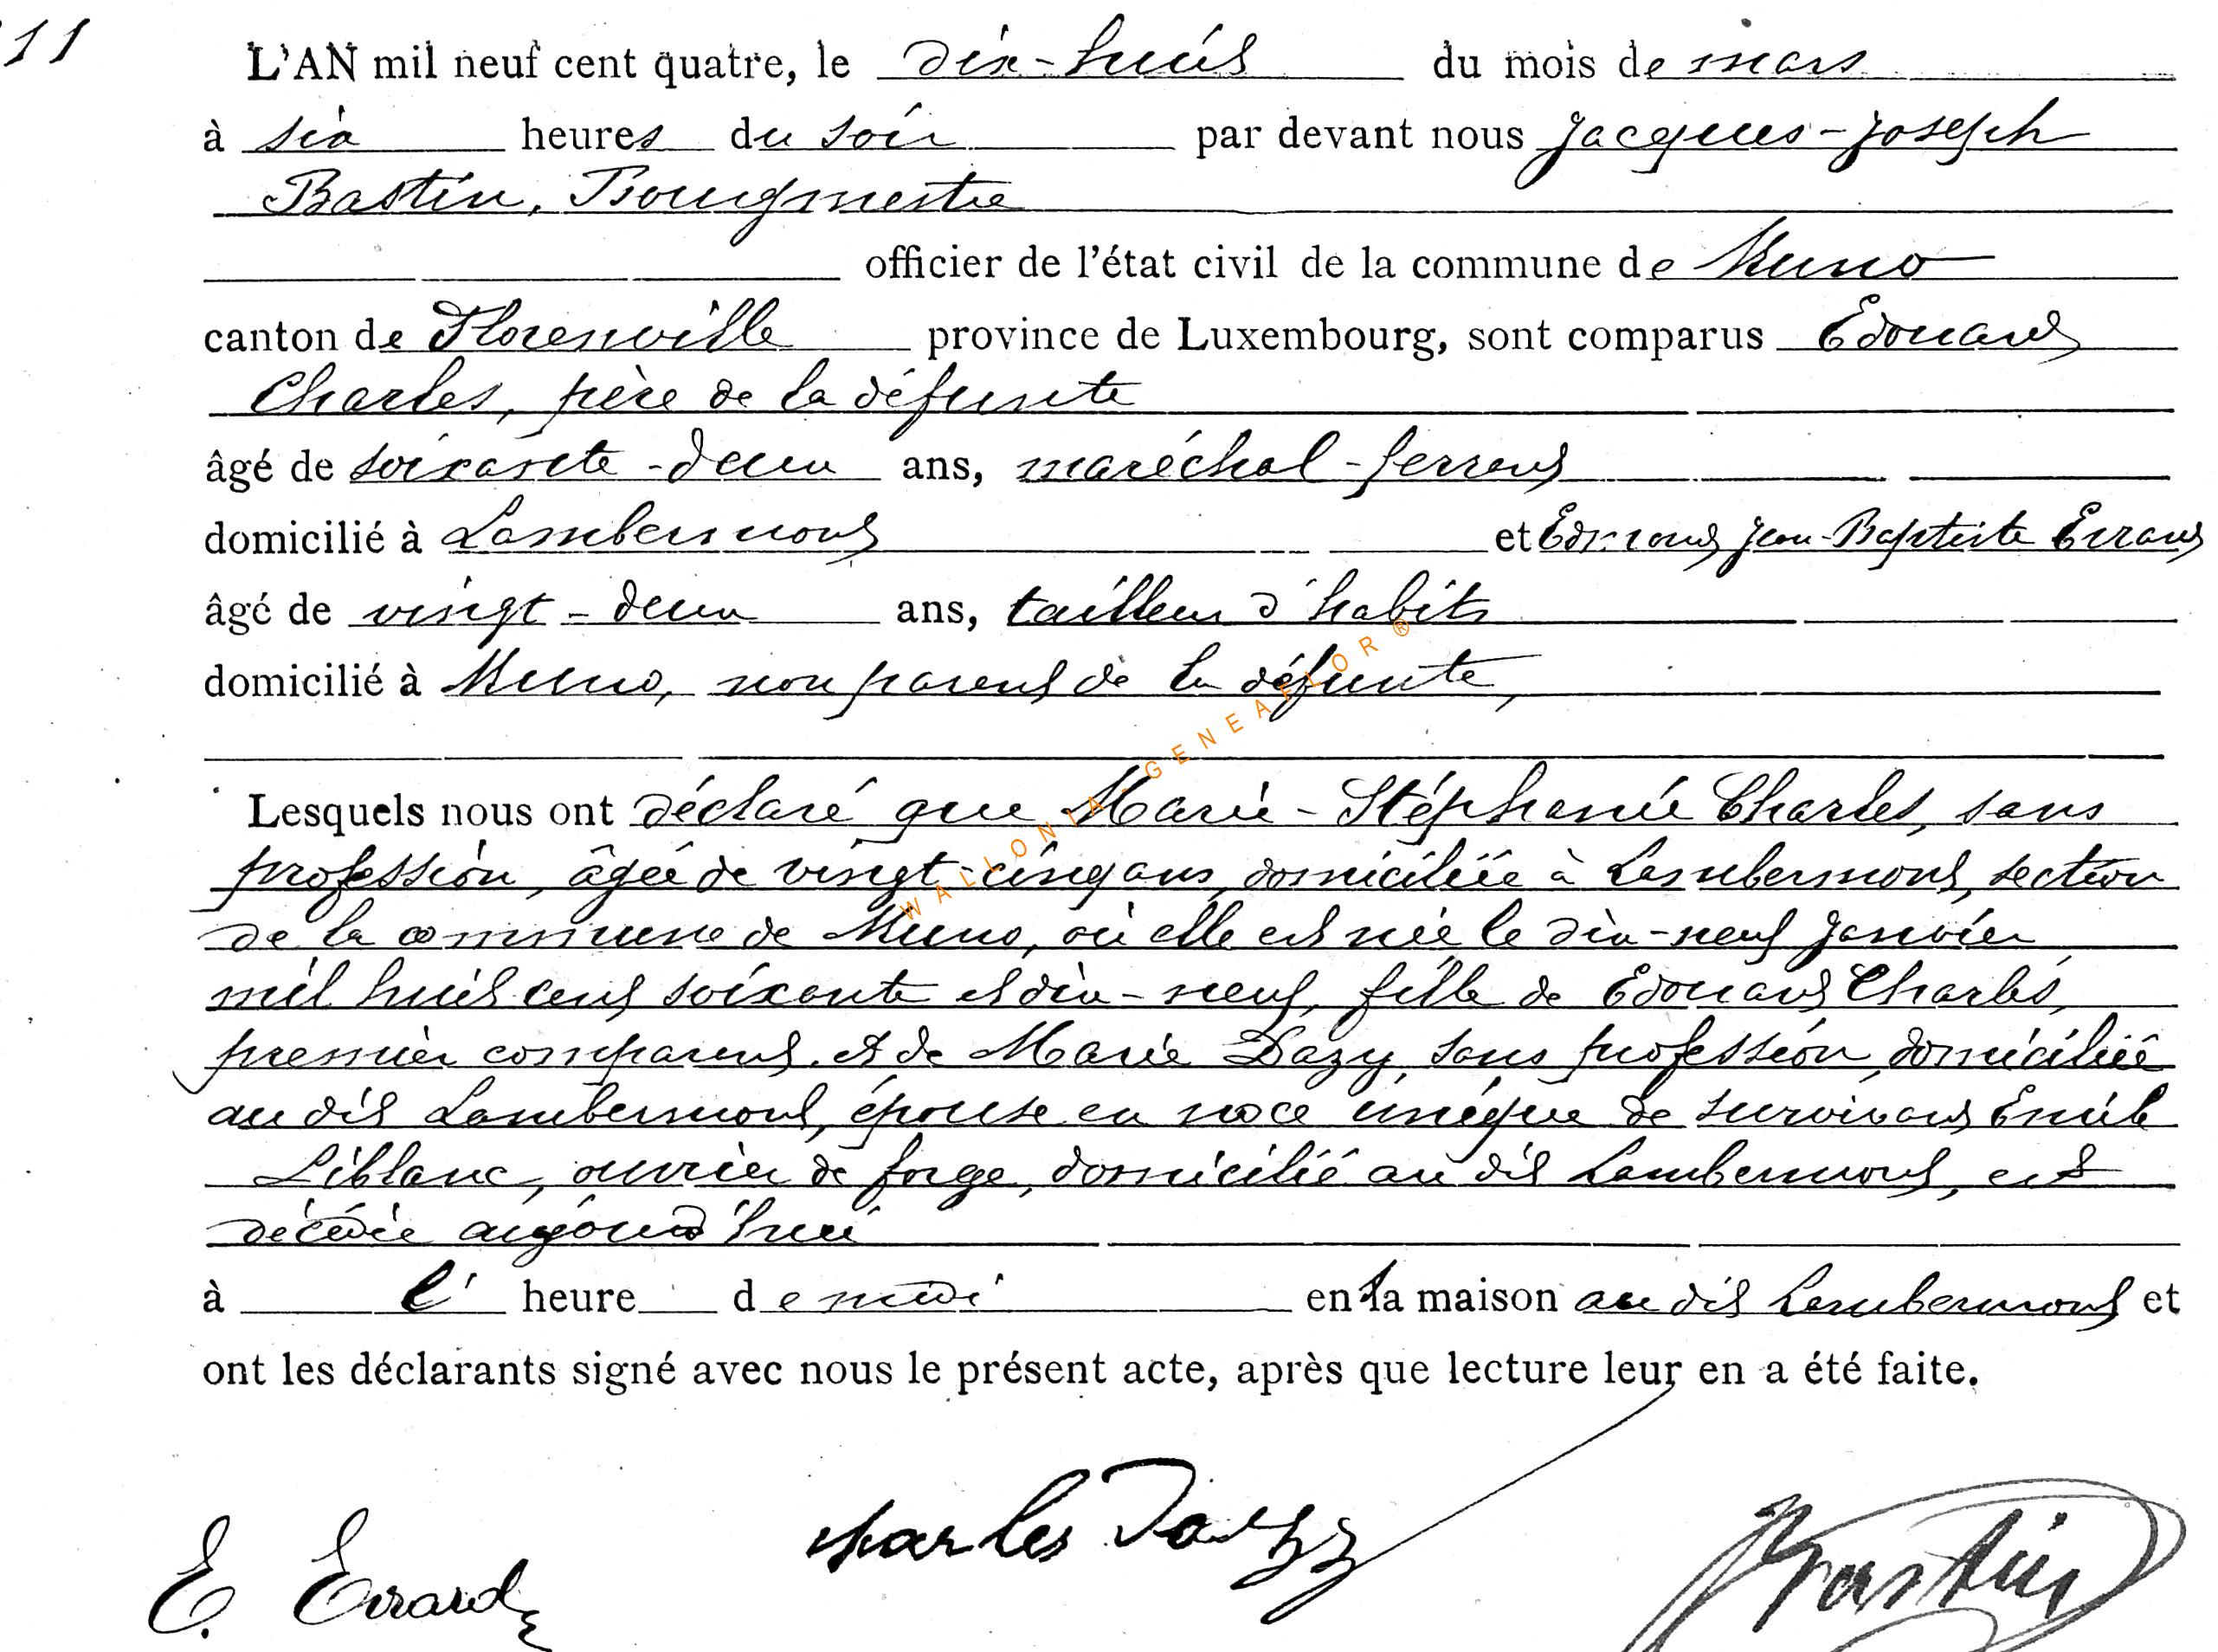 11
L'AN mil neuf cent quatre, le dix-huit du mois de mars
à six heures du soir par devant nous Jacques-Joseph
Bastin, Bourgmestre
officier de l'état civil de la commune de Muno
canton de Florenville province de Luxembourg, sont comparus Edouard
Charles, père de la défunte
âgé de soixante-deux ans, maréchal-ferrant
domicilié à Lambermont et Edmond Jean-Baptiste Errard
âgé de vingt-deux ans, tailleur d'habits
domicilié à Muno, non parent de la défunte,
Lesquels nous ont déclaré que Marie-Stéphanie Charles, sans
profession, âgée de vingt-cinq ans, domiciliée à Lambermont, section
de la commune de Muno, où elle est née le dix-neuf janvier
mil huit cent soixante et dix-neuf, fille de Edouard Charles,
premier comparant, et de Marie Dazy, sans profession, domiciliée
au dit Lambermont, épouse en noce unique de survivant Emile
Liblanc, ouvrier de forge, domicilié au dit Lambermont, est
décédée aujourd'hui
à l' heure de midi en la maison au dit Lambermont et
ont les déclarants signé avec nous le présent acte, après que lecture leur en a été faite.
E. Errard Charles Bastin
WALLONIA GENEAFLOR®